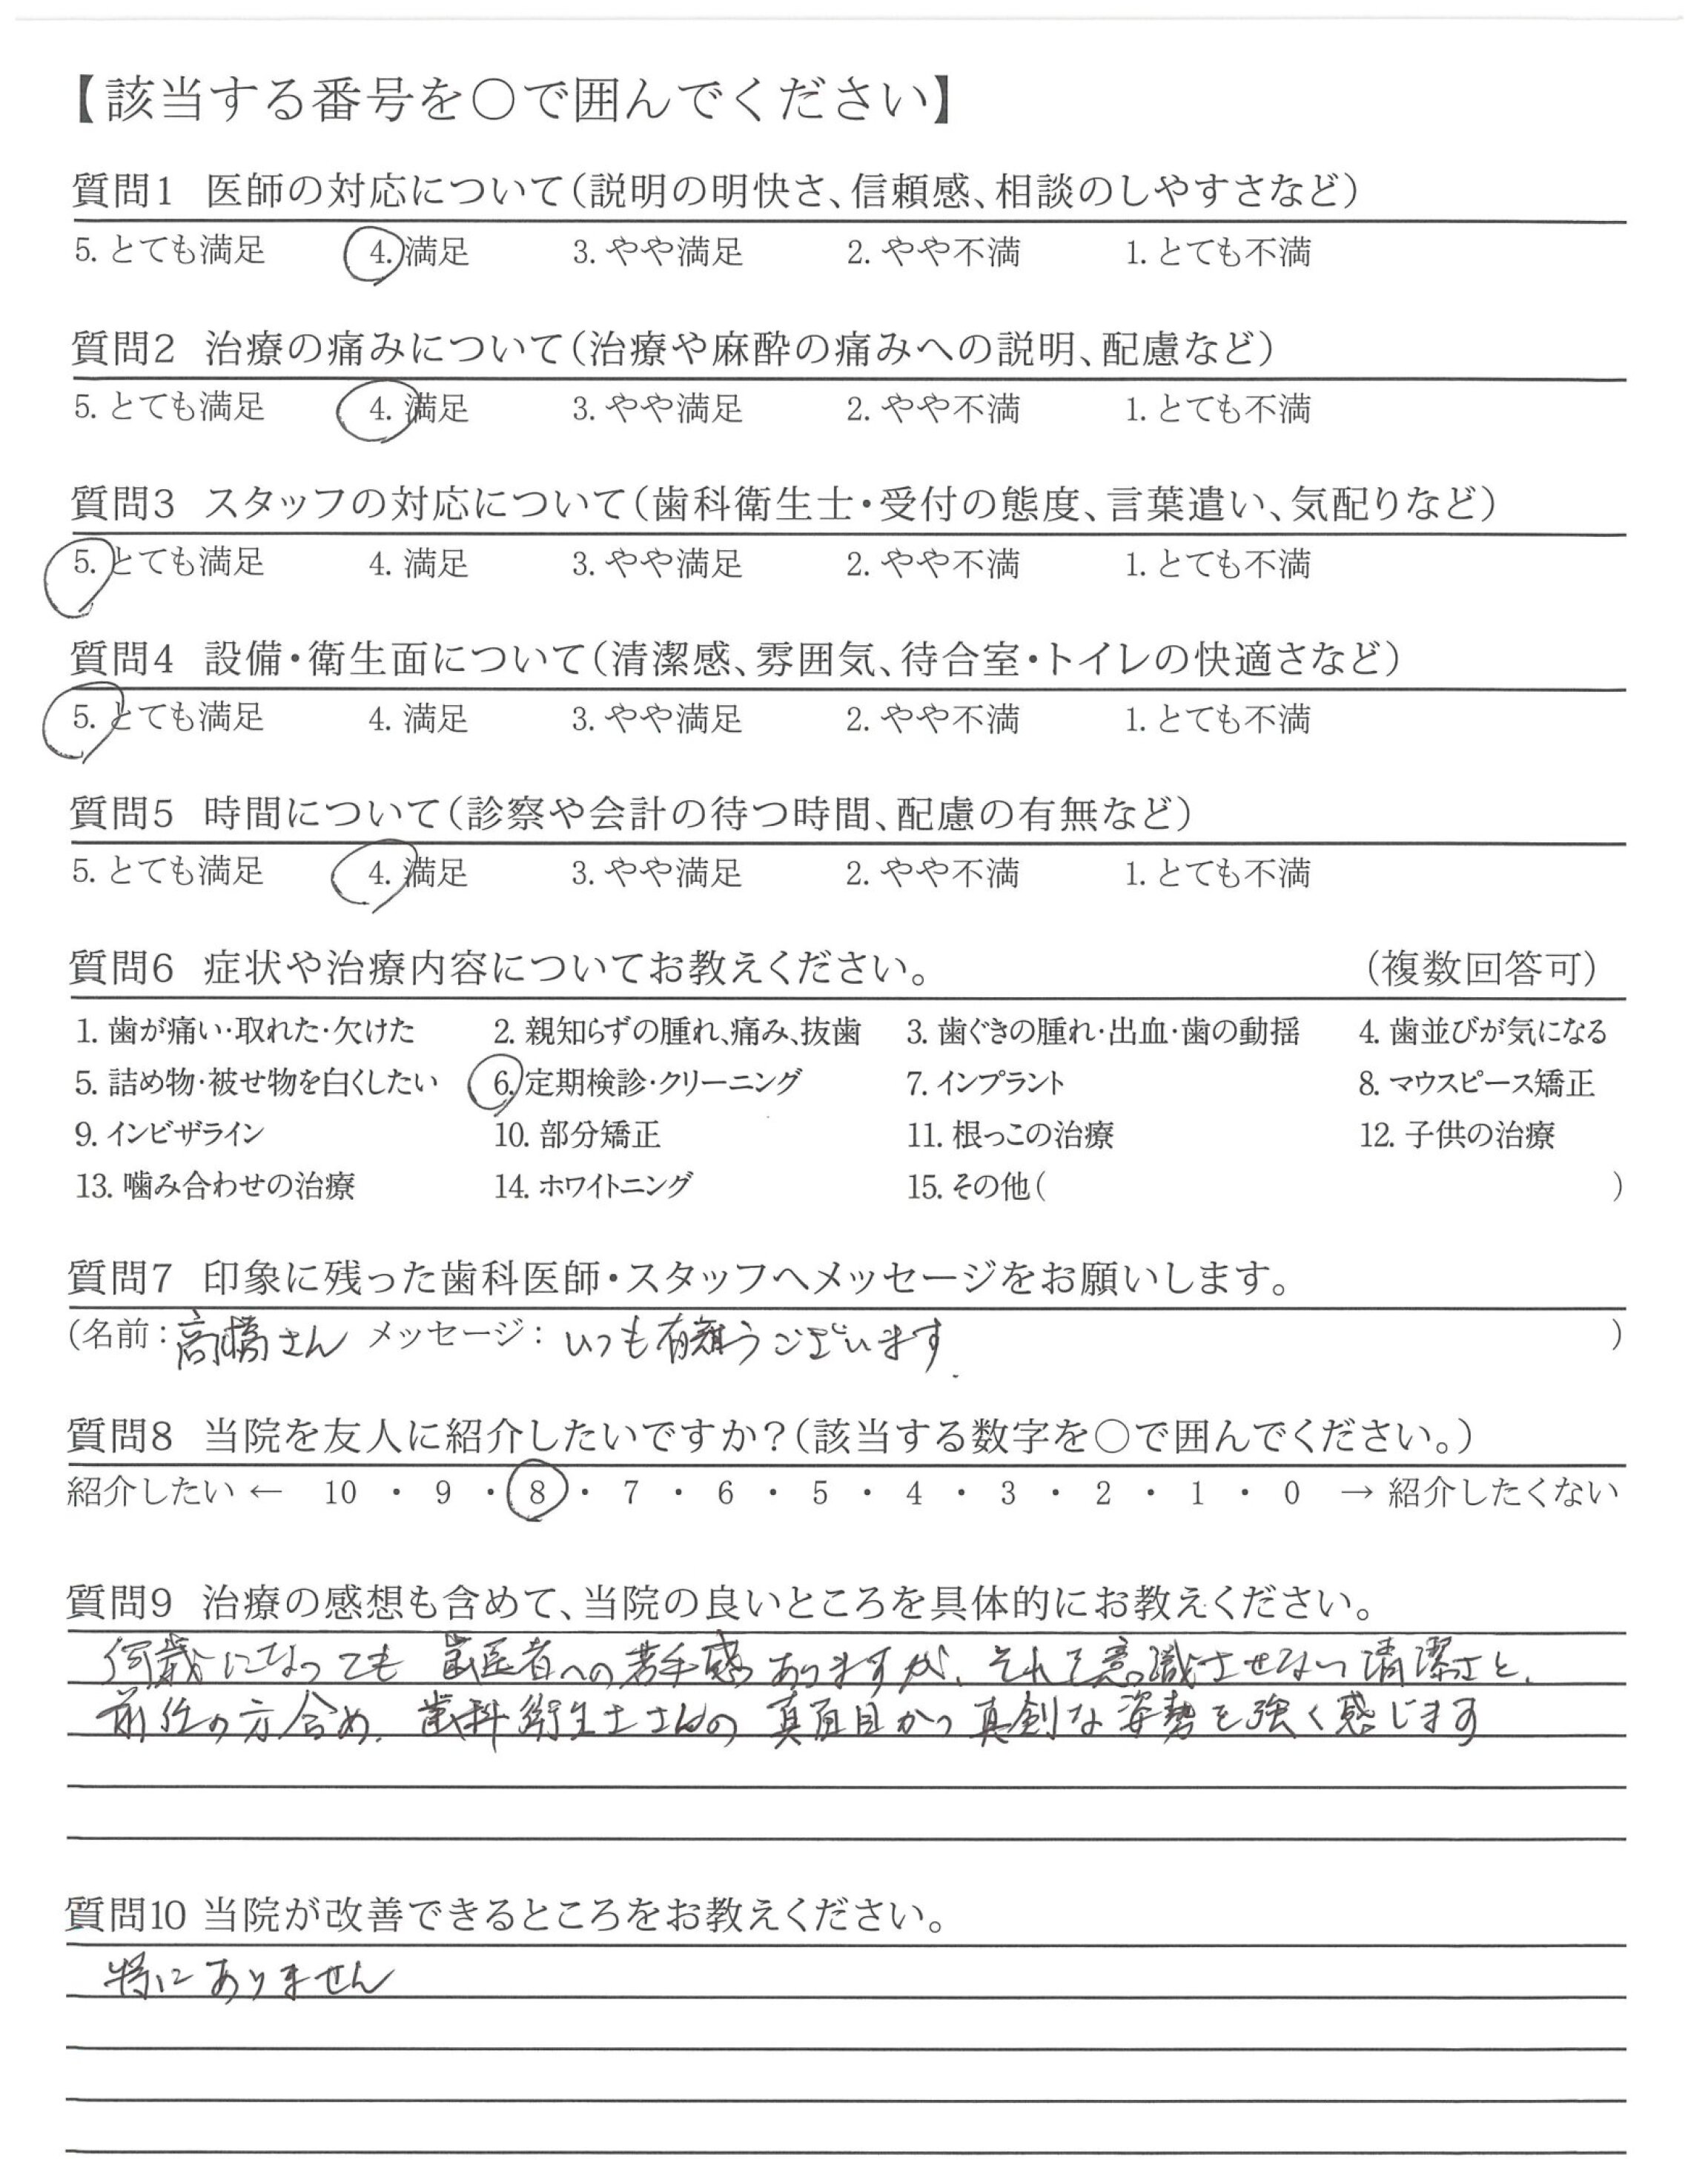 【該当する番号を○で囲んでください】
質問1 医師の対応について(説明の明快さ、信頼感、相談のしやすさなど)
5. とても満足 4. 満足 3. やや満足 2. やや不満 1. とても不満
質問2 治療の痛みについて(治療や麻酔の痛みへの説明、配慮など)
5. とても満足 4. 満足 3. やや満足 2. やや不満 1. とても不満
質問3 スタッフの対応について(歯科衛生士・受付の態度、言葉遣い、気配りなど)
5. とても満足 4. 満足 3. やや満足 2. やや不満 1. とても不満
質問4 設備・衛生面について(清潔感、雰囲気、待合室・トイレの快適さなど)
5. とても満足 4. 満足 3. やや満足 2. やや不満 1. とても不満
質問5 時間について(診察や会計の待つ時間、配慮の有無など)
5. とても満足 4. 満足 3. やや満足 2. やや不満 1. とても不満
質問6 症状や治療内容についてお教えください。 (複数回答可)
1. 歯が痛い・取れた・欠けた 2. 親知らずの腫れ、痛み、抜歯 3. 歯ぐきの腫れ・出血・歯の動揺 4. 歯並びが気になる
5. 詰め物・被せ物を白くしたい 6. 定期検診・クリーニング 7. インプラント 8. マウスピース矯正
9. インビザライン 10. 部分矯正 11. 根っこの治療 12. 子供の治療
13. 噛み合わせの治療 14. ホワイトニング 15. その他( )
質問7 印象に残った歯科医師・スタッフへメッセージをお願いします。
(名前：高橋さん メッセージ：いつも有難うございます. )
質問8 当院を友人に紹介したいですか？(該当する数字を○で囲んでください。)
紹介したい ← 10 ・ 9 ・ 8 ・ 7 ・ 6 ・ 5 ・ 4 ・ 3 ・ 2 ・ 1 ・ 0 → 紹介したくない
質問9 治療の感想も含めて、当院の良いところを具体的にお教えください。
何歳になっても 歯医者への苦手感ありますが、それを意識させない清潔さと、
前任の方含め、歯科衛生士さんの 真面目かつ真剣な姿勢を強く感じます
質問10 当院が改善できるところをお教えください。
特にありません